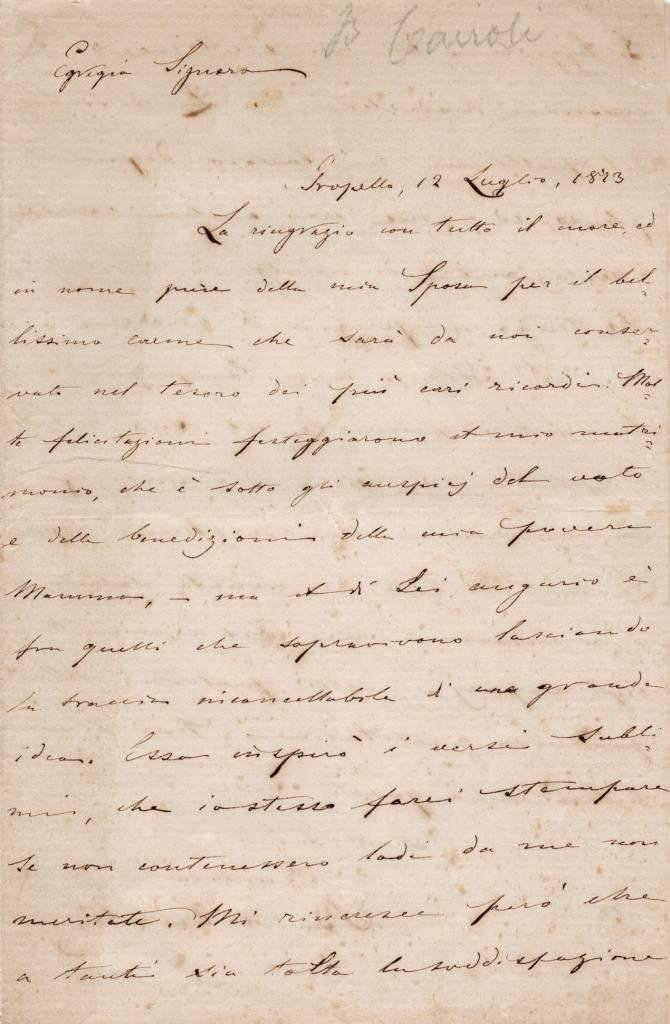 B Cairoli
Egregia Signora
Gropello, 12 Luglio, 1873
La ringrazio con tutto il cuore, ed
in nome pure della mia Sposa per il bel-
lissimo carme che sarà da noi conser-
vato nel tesoro dei più cari ricordi. Mol-
te felicitazioni festeggiarono il mio matri-
monio, che è sotto gli auspicj del voto
e delle benedizioni della mia povera
Mamma, – ma il di Lei augurio è
fra quelli che sopravivono lasciando
la traccia incancellabile di una grande
idea. Essa inspirò i versi subli-
mi, che io stesso farei stampare
se non contenessero lodi da me non
meritate. Mi rincresce però che
a tanti sia tolta la soddisfazione